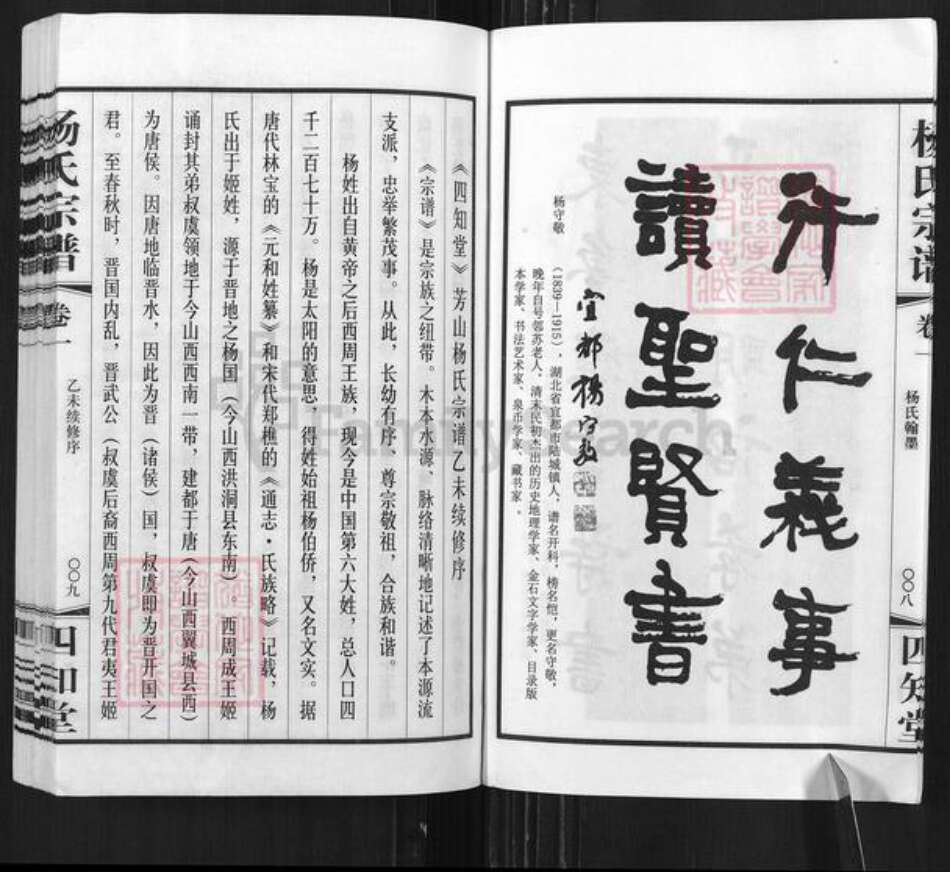 杨氏宗谱
卷一
杨氏翰墨
〇〇八
四知堂
行仁义事
讀聖賢書
宜都楊守敬
杨守敬
(1839—1915)，湖北省宜都市陆城镇人，谱名开科，榜名恺，更名守敬，
晚年自号邻苏老人。清末民初杰出的历史地理学家、金石文字学家、目录版
本学家、书法艺术家、泉币学家、藏书家。
《四知堂》芳山杨氏宗谱乙未续修序
《宗谱》是宗族之纽带。木本水源、脉络清晰地记述了本源流
支派，忠举繁茂事。从此，长幼有序、尊宗敬祖，合族和谐。
杨姓出自黄帝之后西周王族，现今是中国第六大姓，总人口四
千二百七十万。杨是太阳的意思，得姓始祖杨伯侨，又名文实。据
唐代林宝的《元和姓纂》和宋代郑樵的《通志·氏族略》记载，杨
氏出于姬姓，源于晋地之杨国（今山西洪洞县东南）。西周成王姬
诵封其弟叔虞领地于今山西西南一带，建都于唐（今山西翼城县西）
为唐侯。因唐地临晋水，因此为晋（诸侯）国，叔虞即为晋开国之
君。至春秋时，晋国内乱，晋武公（叔虞后裔西周第九代君夷王姬
杨氏宗谱
卷一
乙未续修序
〇〇九
四知堂
FamilySearch